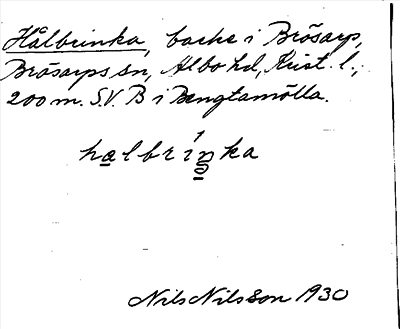 Hålbrinka, backe i Brösarp,
Brösarps sn, Albo hd, Krist. l.;
200 m. S.V. B i Bengtamölla.
halbriŋka
Nils Nilsson 1930